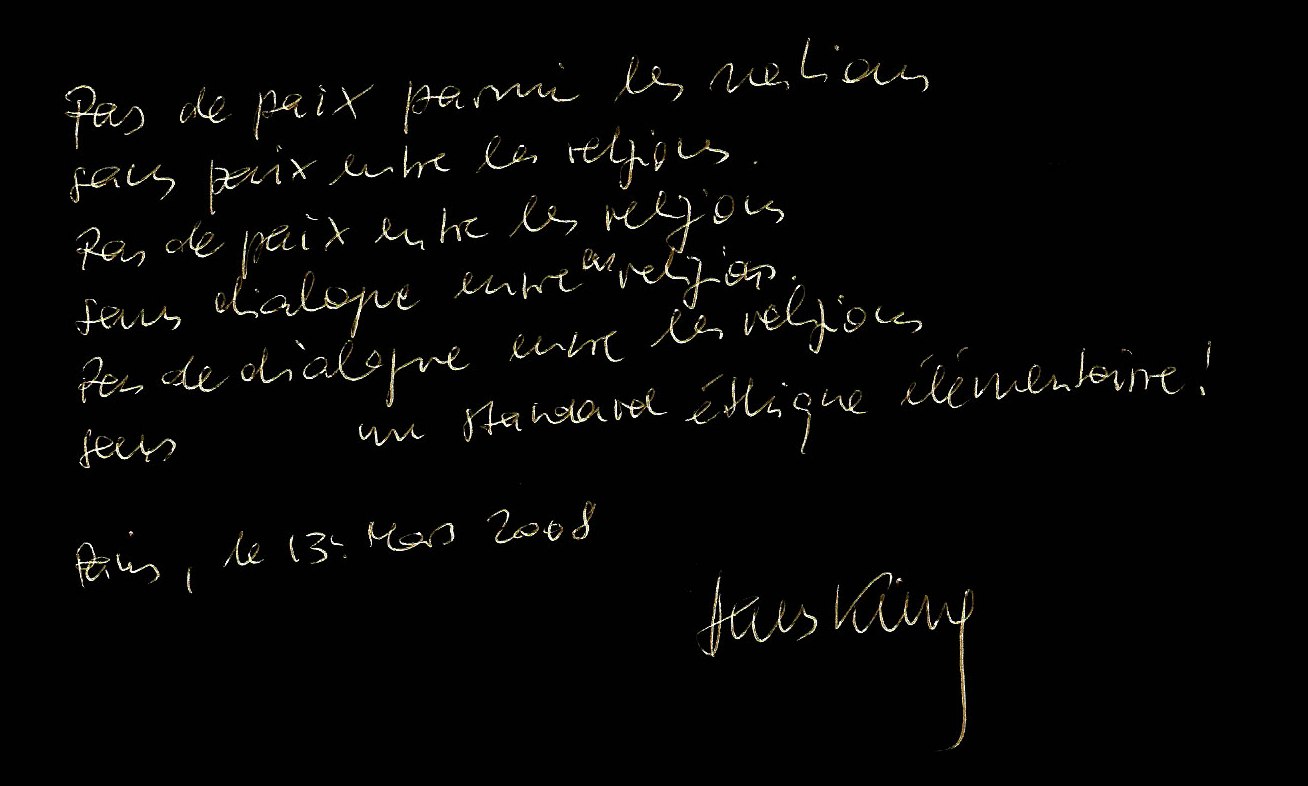 Pas de paix parmi les nations
sans paix entre les religions.
Pas de paix entre les religions
sans dialogue entre les religions.
Pas de dialogue entre les religions
sans un standard éthique élémentaire!
Paris, le 13. Mars 2008
Hans Küng